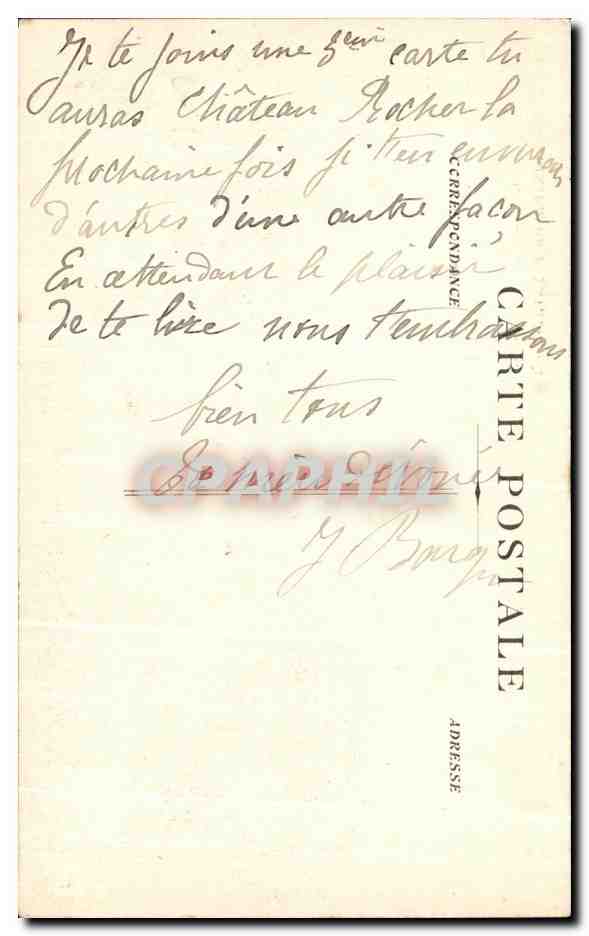 Je te joins une 5em carte tu
auras Château Rocher la
prochaine fois je t'en enverrai
d'autres d'une autre façon
En attendant le plaisir
de te lire nous t'embrassons
bien tous
Ta mère dévouée
J Barg
CARTE POSTALE
CORRESPONDANCE
ADRESSE
CPAPHIL